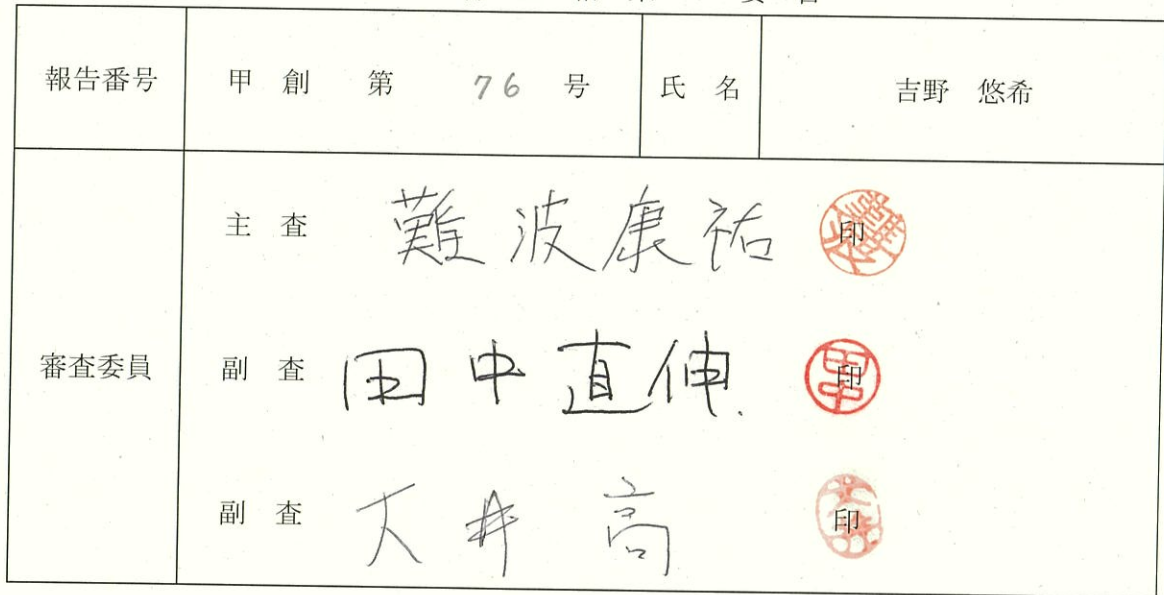 報告番号 甲 創 第 76 号 氏 名 吉野 悠希
審査委員
主 査 難波康祐 印
副 査 田中直伸 印
副 査 大井 高 印